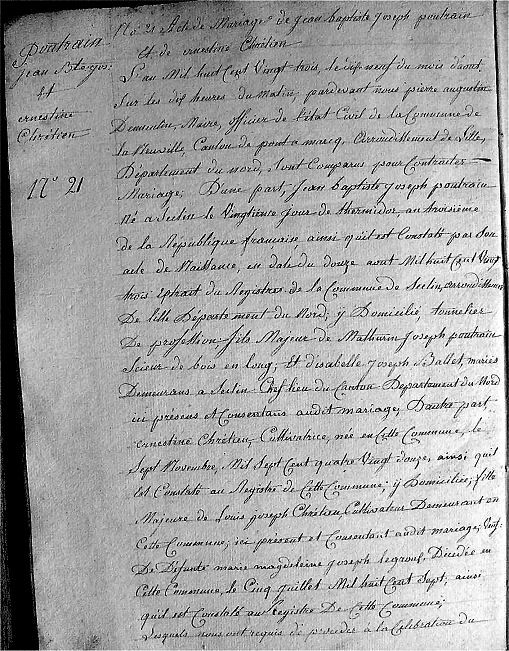 Poutrain
jean Bte jos:
et
ernestine
Chrétien
N.° 21
N.° 21 Acte de Mariage de Jean baptiste Joseph poutrain
et de ernestine Chrétien
L'an Mil huit Cent Vingt trois, le dix neuf du mois daout
sur les dix heures du Matin, pardevant nous pierre augustin
Maire, officier de l'état Civil de la Commune de
la Neuville, Canton de pont a marcq, Arrondissement de Lille,
Département du nord, Sont Comparus pour Contracter
Mariage; D'une part, Jean baptiste Joseph poutrain
Né a Seclin le Vingtieme Jour de thermidor, an troisième
de la République francaise, ainsi qu'il est Constaté par Son
acte de Naissance, en date du douze aout Mil huit Cent Vingt
trois Extrait du Registres de la Commune de Seclin, arrondissement
De Lille Département du Nord; y Domicilié, tonnelier
De profession fils Majeur de Mathurin Joseph poutrain
Scieur de bois en long; Et d'isabelle Joseph Ballet, mariés
Demeurans a Seclin Chef lieu du Canton Département du Nord
ici présens et Consentans audit mariage; Dautre part,
ernestine Chrétien, Cultivatrice, née en Cette Commune, le
Sept Novembre, Mil Sept Cent quatre Vingt douze, ainsi qu'il
Est Constaté au Registre de Cette Commune; y Domiciliée; fille
Majeure de Louis Joseph Chrétien, Cultivateur Demeurant en
Cette Commune; ici présent et Consentant audit mariage;
De Défunte marie magdeleine Joseph legroux, Décédée en
Cette Commune, le Cinq Juillet Mil huit Cent Sept; ainsi
qu'il est Constaté au Registre De Cette Commune;
Lesquels nous ont requis de procéder à la Célébration du